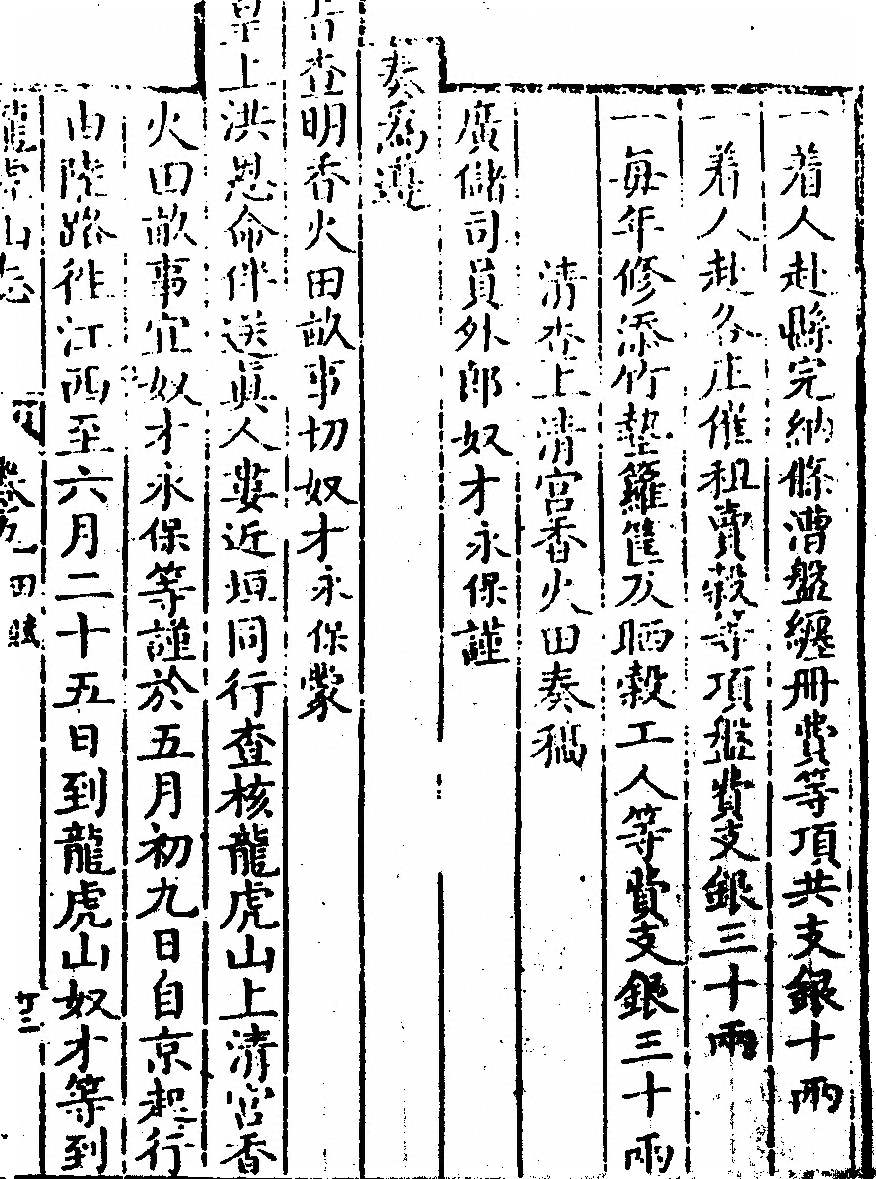 一着人赴縣完納條漕盤纏冊費等項共支銀十兩
一着人赴各庄催租賣穀等項盤費支銀三十兩
一每年修添竹墊籮筐及晒穀工人等費支銀三十兩
清查上清宮香火田奏稿
廣儲司員外郎奴才永保謹
奏為遵
旨查明香火田畝事切奴才永保蒙
皇上洪恩命伴送眞人婁近垣同行查核龍虎山上清宮香
火田畝事宜奴才永保等謹於五月初九日自京起行
由陸路徃江西至六月二十五日到龍虎山奴才等到
龍虎山志
卷九
田賦
廿二